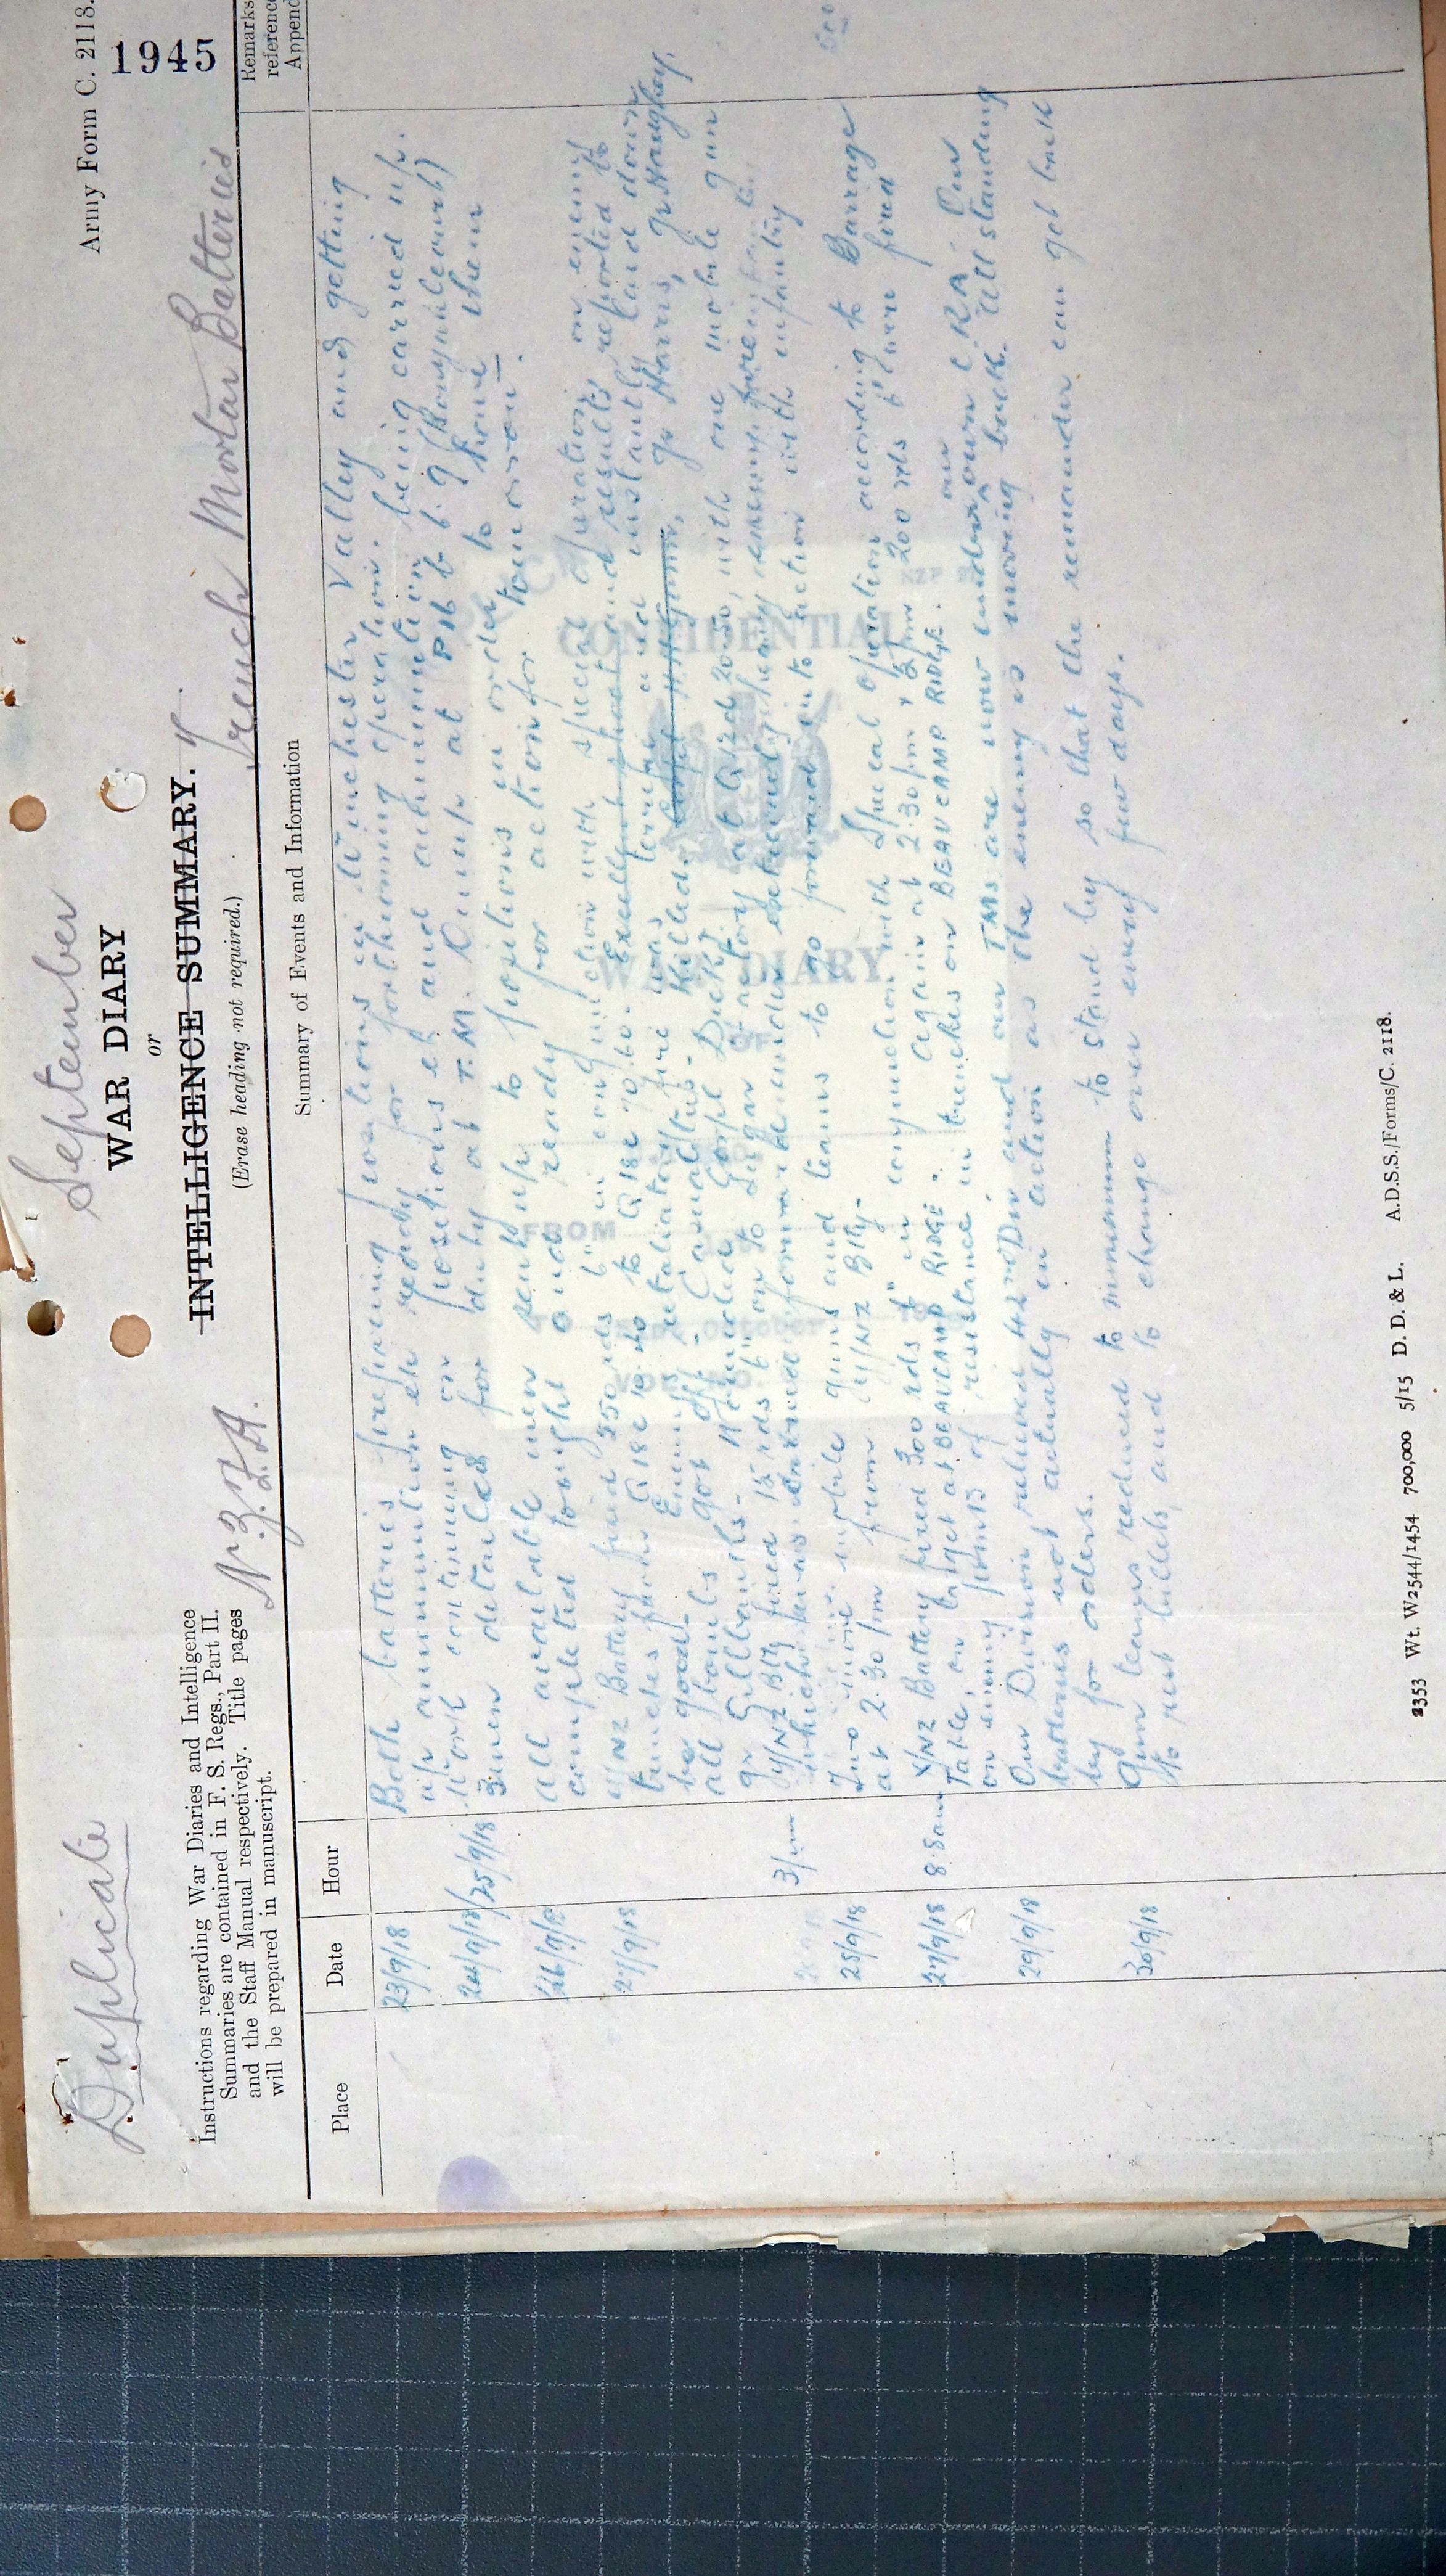 Duplicate
September
Army Form C. 2118.
1945
WAR DIARY
or
INTELLIGENCE SUMMARY.
(Erase heading not required.)
N.Z.F.A.
Trench Mortar Batteries
Instructions regarding War Diaries and Intelligence
Summaries are contained in F. S. Regs., Part II.
and the Staff Manual respectively. Title pages
will be prepared in manuscript.
Place
Date
Hour
Summary of Events and Information
Remarks
reference
Append
23/9/18
Both batteries preparing positions in Winchester Valley and getting
up ammunition etc ready for forthcoming operation.
24/9/18 25/9/18
Work continuing on positions etc and ammunition being carried up.
3 men detailed for duty at T.M. Dump at P16 b 6.9
26/9/18
All available men sent up to positions in order to have them
completed tonight and ready for action for tomorrow.
27/9/18
Battery fired 550 rds 6" in conjunction with special operation on enemy
trenches from Q18c 10.40 to Q18c 70.60. Excellent shoot and results reported to
be good. Enemy's retaliatory fire was terrific and instantly laid down
all bombs got off. Casualties - Killed, Gr Harris, Gr Haughey,
Gr Gillbanks - Wounded Corpl Dick.
3pm
Y/NZ Bty fired 15 rds 6" on to Sugar Factory at Q12d 20.50, with one mobile gun
which was forward under extremely heavy enemy fire
28/9/18
Two more mobile guns and teams to go forward into action with infantry
at 2.30 pm from NZ Bty-
27/9/18
8.8am
Y/NZ Battery fired 300 rds 6" in conjunction with Special operation according to Barrage
Table, on target at BEAUCAMP RIDGE. Again at 2.30 pm & 5 pm 200 rds 6" were fired
on enemy points of resistance in trenches on BEAUCAMP RIDGE.
29/9/18
Our Division relieved 42nd Div and our TMs are now under our own CRA - Our
batteries not actually in action as the enemy is moving back. All standing
by for orders.
30/9/18
Gun teams reduced to minimum to stand by so that the remainder can get back
to rest billets, and to change over every few days.
CONFIDENTIAL
WAR DIARY
OF
FROM
TO
October
VOL. NO.
2353 Wt. W2544/1454 700,000 5/15 D. D. & L. A.D.S.S./Forms/C. 2118.